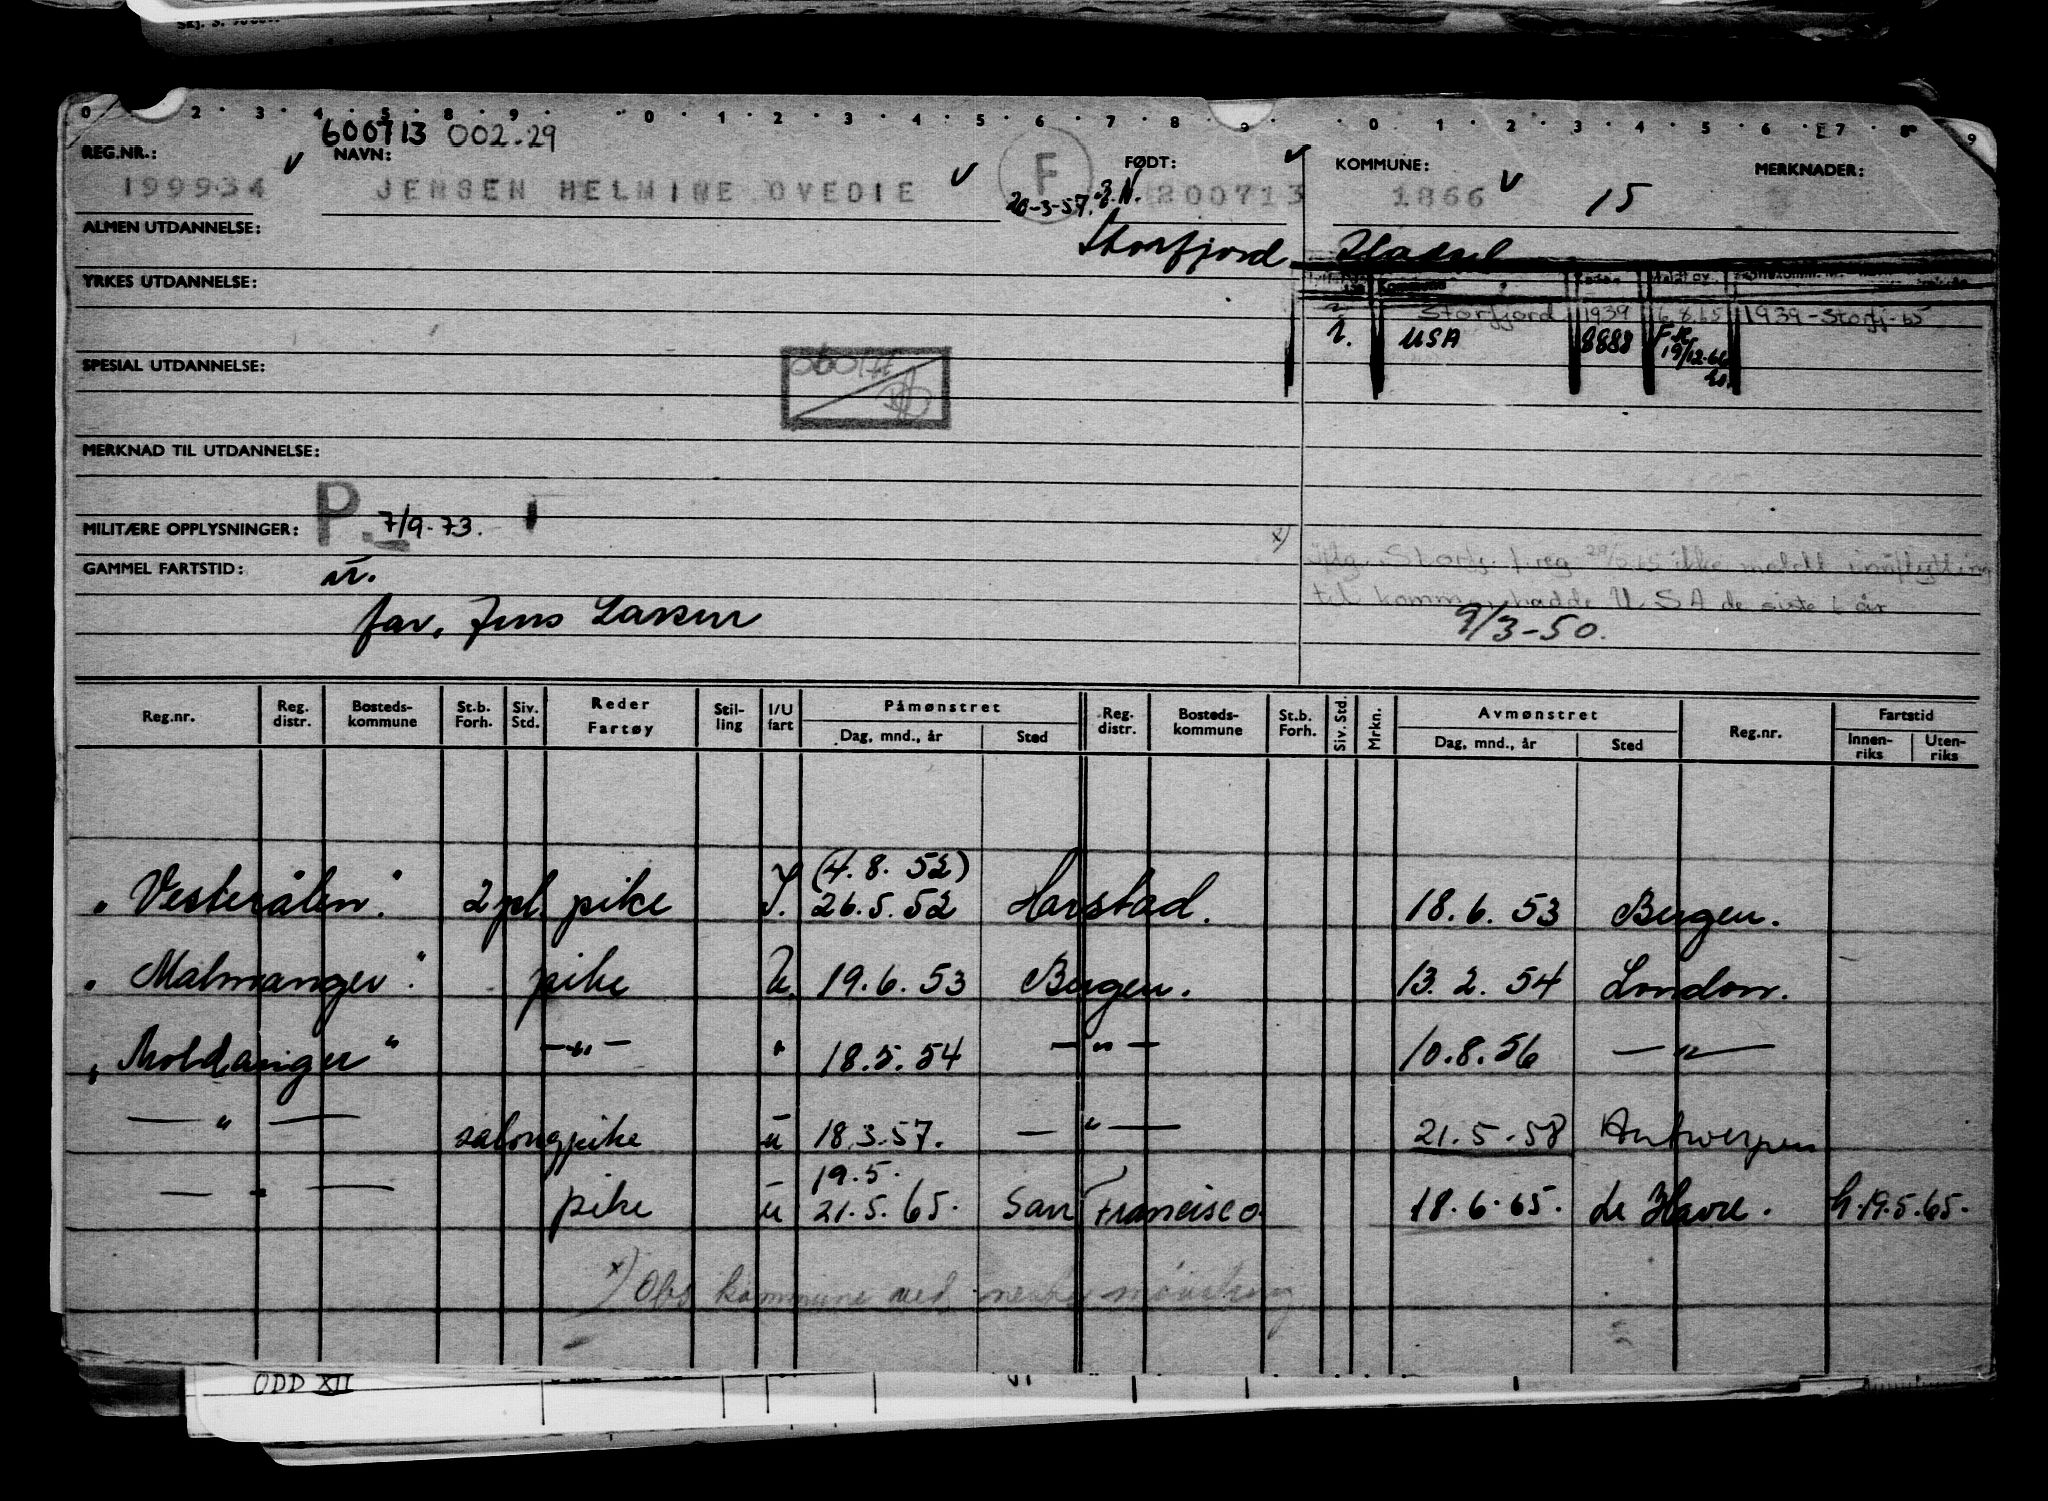 0 2 3 4 5 8 9 0 1 2 3 4 5 6 7 8 9 0 1 2 3 4 5 6 7 8 9
600713 002-29
REG.NR.: NAVN: FØDT: KOMMUNE: MERKNADER:
199934 JENSEN HELMINE OVEDIE F 200713 1866 15
20-3-57.
ALMEN UTDANNELSE: Storfjord Hadsel
YRKES UTDANNELSE: Kommune
Storfjord 1939 6.8.65 1939-Storfj-65
USA 8888 F.R. 19/12-66
SPESIAL UTDANNELSE:
MERKNAD TIL UTDANNELSE:
MILITÆRE OPPLYSNINGER: P. 7/9-73.
x) Iflg. Storfj. f.reg. ikke meldt innflytting
GAMMEL FARTSTID: u.
til kommunen hadde U.S.A de siste 6 år
far, Jens Larsen 9/3-50.
Reg.nr. Reg. distr. Bosteds-kommune St.b. Forh. Siv. Std. Reder Fartøy Stil-ling I/U fart Påmønstret Dag, mnd., år Sted Reg. distr. Bosteds-kommune St.b. Forh. Siv. Std. Mrkn. Avmønstret Dag, mnd., år Sted Reg.nr. Fartstid Innen-riks Uten-riks
(4.8.52)
"Vesterålen" 2 pl. pike I. 26.5.52 Harstad. 18.6.53 Bergen.
"Malmanger" pike U. 19.6.53 Bergen. 13.2.54 London.
"Moldanger" —"— " 18.5.54 —"— 10.8.56 —"—
—"— salongpike u 18.3.57. —"— 21.5-58 Antwerpen
19.5.
—"— pike u 21.5.65. San Francisco 18.6.65. Le Havre. h.19.5.65.
x) Obs kommune ved neste mønstring
ODD XII